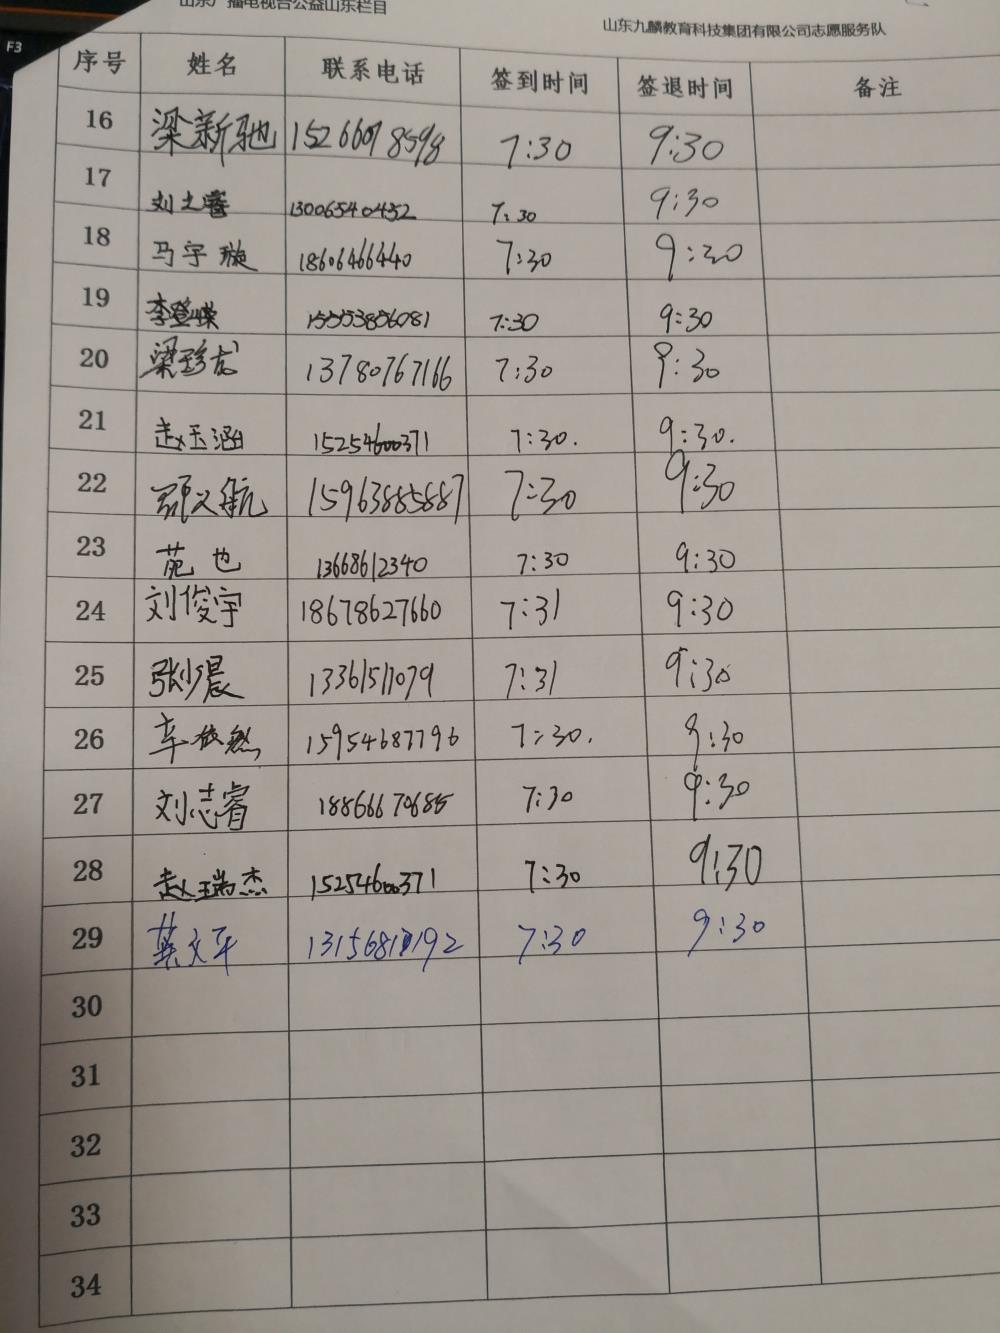 F3
山东广播电视台公益山东栏目
山东九麟教育科技集团有限公司志愿服务队
序号 姓名 联系电话 签到时间 签退时间 备注
16 梁新驰 15266078598 7:30 9:30
17 刘之睿 13006540432 7:30 9:30
18 马宇璇 18606466440 7:30 9:30
19 李登嵘 15553856081 7:30 9:30
20 梁珍龙 13780767166 7:30 9:30
21 赵玉涵 15254600371 7:30. 9:30.
22 顾义航 15963885887 7:30 9:30
23 苑也 13668612340 7:30 9:30
24 刘俊宇 18678627660 7:31 9:30
25 张少晨 13361511079 7:31 9:30
26 车依然 15954687796 7:30. 9:30
27 刘志睿 18866670685 7:30 9:30
28 赵瑞杰 15254600371 7:30 9:30
29 7:30 9:30
30
31
32
33
34